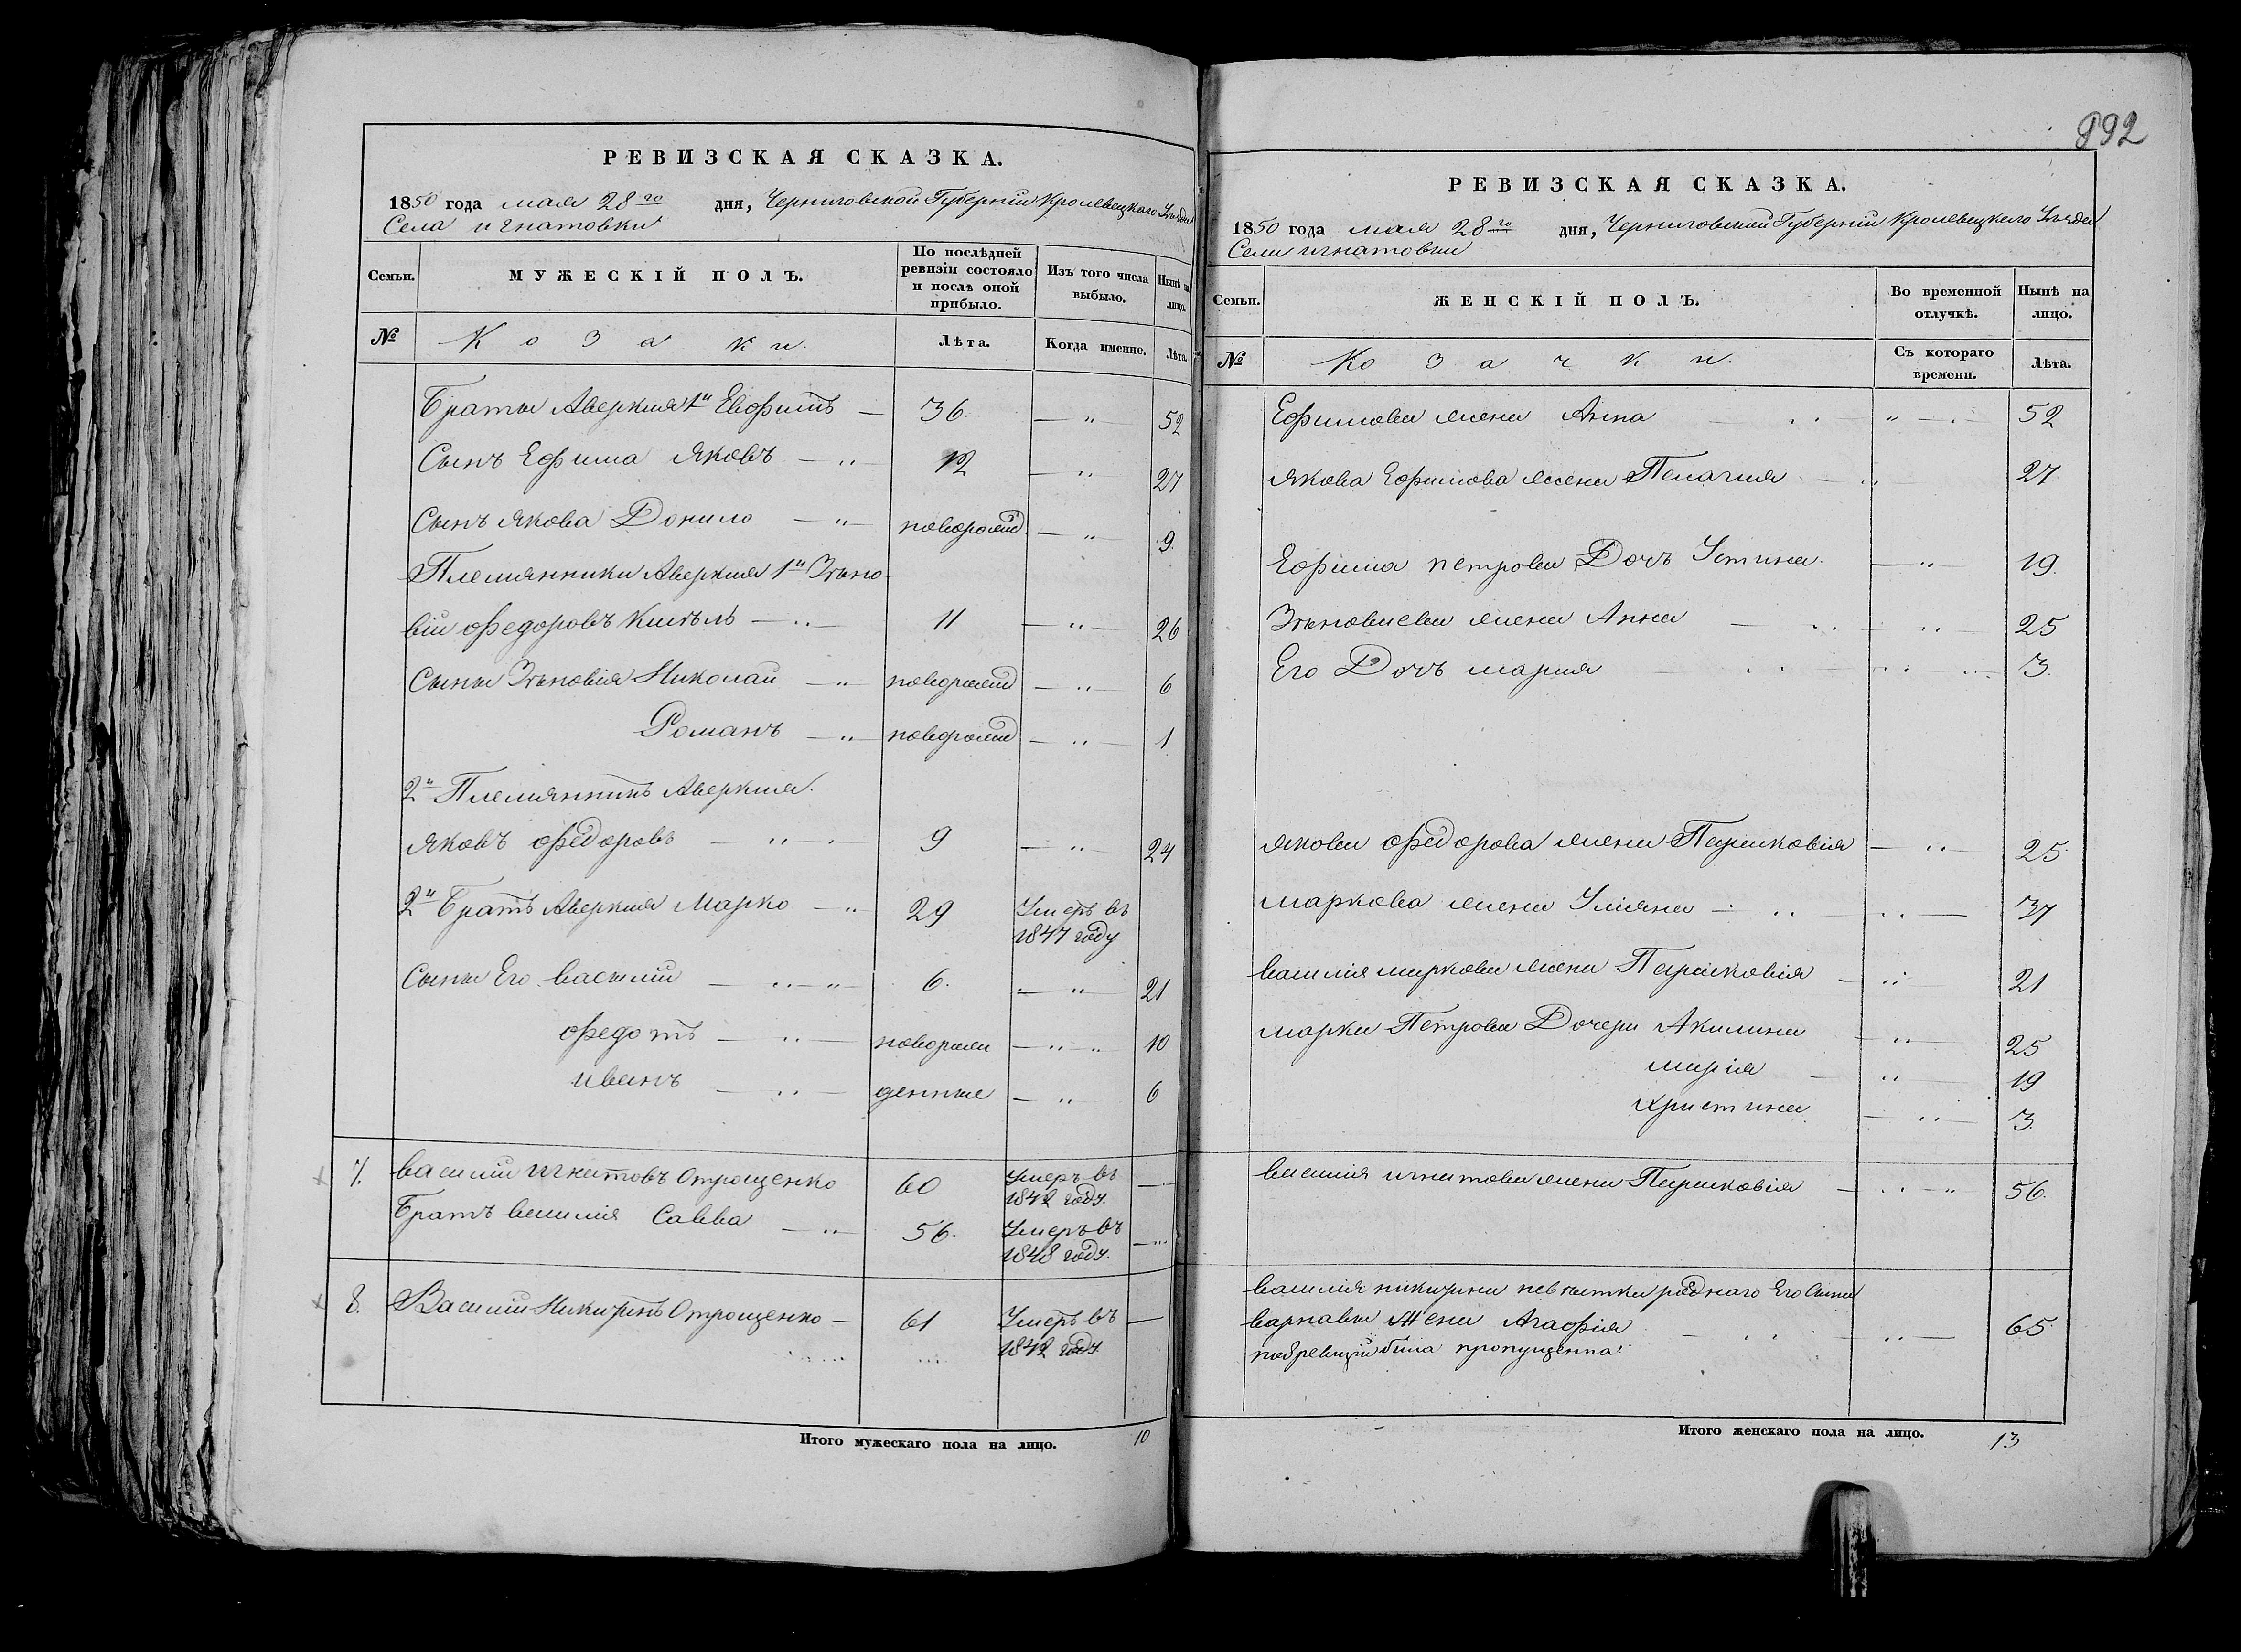 892
РЕВИЗСКАЯ СКАЗКА.
1850 года мая 28го дня, Черниговской Губерніи Кролевецкаго Уезда
Села игнатовки
Семьи. МУЖЕСКІЙ ПОЛЪ. По послѣдней ревизіи состояло и послѣ оной прибыло. Изъ того числа выбыло. Нынѣ на лицо.
№ Козаки. Лѣта. Когда именно. Лѣта.
Братья Аверкия 1й — 36. — " — 52
Сынъ Ефима Яковъ — " — 12 — " — 27
Сынъ Якова Данило — " — новорожд. — " — 9
Племянники Аверкия 1й Зѣно-
вій Федоровъ — " — 11 — " — 26
Сыны Зѣновія Николай — " — новорожд — " — 6
Романъ — " — новорожд — " — 1
2й Племянникъ Аверкия.
Яковъ Федоровъ — " — 9 — " — 24
2й Братъ Аверкия Марко — " — 29 Умеръ въ
1847 году
Сыны Его Василий — " — " — 6. — " — 21
Федотъ — " — новорож — " — " 10
иванъ — " — денные — " — 6
7. Василий игнатовъ Отрощенко 60 Умеръ въ
1842 году. —
Братъ Василия Савва — " — 56. Умеръ въ
1848 году. — "
8. Василий Никитинъ Отрощенко — 61 Умеръ въ —
1842 году.
Итого мужескаго пола на лицо. 10
РЕВИЗСКАЯ СКАЗКА.
1850 года мая 28го дня, Черниговской Губерніи Кролевецкаго Уезда
Села игнатовки
Семьи. ЖЕНСКІЙ ПОЛЪ. Во временной отлучкѣ. Нынѣ на лицо.
№ Козачки. Съ котораго времени. Лѣта.
Ефимова жена Анна — " — 52
Якова Ефимова жена Пелагия — " 27
Ефима петрова Дочъ Устина. — " — 19.
Зѣновиева жена Анна — " — 25
Его Дочъ мария — " — 3.
Якова Федорова жена Параковія — " — 25.
Маркова жена Улияна — " — 37
Василия маркова жена Параковія — " — 21
Марка Петрова Дочери Акилина — " — 25
марія — " — 19
Христина — " — 3.
Василия игнатова жена Параковія — " — " 56.
Василия никитина роднаго Его Сына
варнавы Жена Агафія — " — 65.
била пропущенна.
Итого женскаго пола на лицо. 13